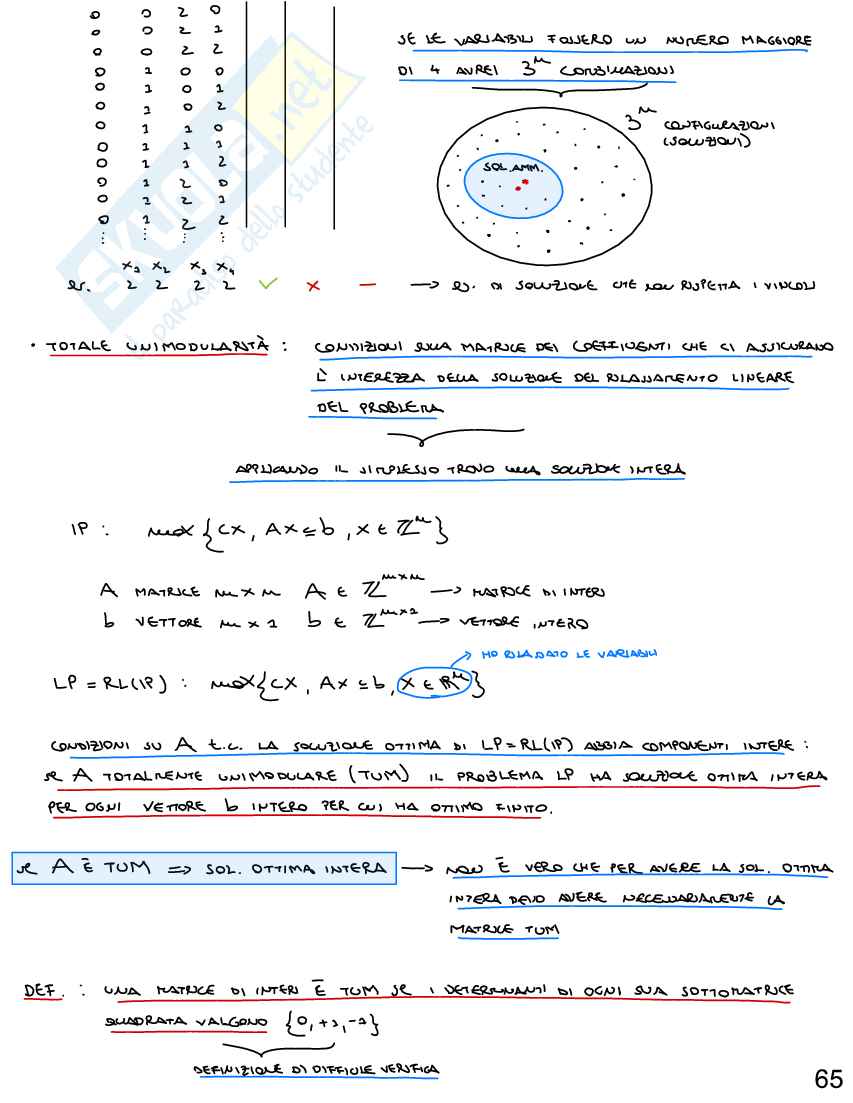 0 0 2 0
0 0 2 1
0 0 2 2
0 1 0 0
0 1 0 1
0 1 0 2
0 1 1 0
0 1 1 1
0 1 1 2
0 1 2 0
0 1 2 1
0 1 2 2
... ... ... ...
SE LE VARIABILI FOSSERO UN NUMERO MAGGIORE
DI 4 AVREI 3ⁿ COMBINAZIONI
3ⁿ CONFIGURAZIONI
(SOLUZIONI)
SOL. AMM.
x₁ x₂ x₃ x₄
es. 2 2 2 2 ✓ × – → ES. DI SOLUZIONE CHE NON RISPETTA I VINCOLI
• TOTALE UNIMODULARITÀ : CONDIZIONI SULLA MATRICE DEI COEFFICIENTI CHE CI ASSICURANO
L'INTEREZZA DELLA SOLUZIONE DEL RILASSAMENTO LINEARE
DEL PROBLEMA
APPLICANDO IL SIMPLESSO TROVO UNA SOLUZIONE INTERA
IP : max {cx, Ax ≤ b, x ∈ ℤⁿ}
A MATRICE m×n A ∈ ℤᵐˣⁿ → MATRICE DI INTERI
b VETTORE m×1 b ∈ ℤᵐˣ¹ → VETTORE INTERO
→ HO RILASSATO LE VARIABILI
LP = RL(IP) : max{cx, Ax ≤ b, x ∈ ℝⁿ}
CONDIZIONI SU A t.c. LA SOLUZIONE OTTIMA DI LP=RL(IP) ABBIA COMPONENTI INTERE :
SE A TOTALMENTE UNIMODULARE (TUM) IL PROBLEMA LP HA SOLUZIONE OTTIMA INTERA
PER OGNI VETTORE b INTERO PER CUI HA OTTIMO FINITO.
SE A È TUM => SOL. OTTIMA INTERA → NON È VERO CHE PER AVERE LA SOL. OTTIMA
INTERA DEVO AVERE NECESSARIAMENTE LA
MATRICE TUM
DEF. : UNA MATRICE DI INTERI È TUM SE I DETERMINANTI DI OGNI SUA SOTTOMATRICE
QUADRATA VALGONO {0, +1, -1}
DEFINIZIONE DI DIFFICILE VERIFICA
65
SKUOLA.net
il paradiso dello studente